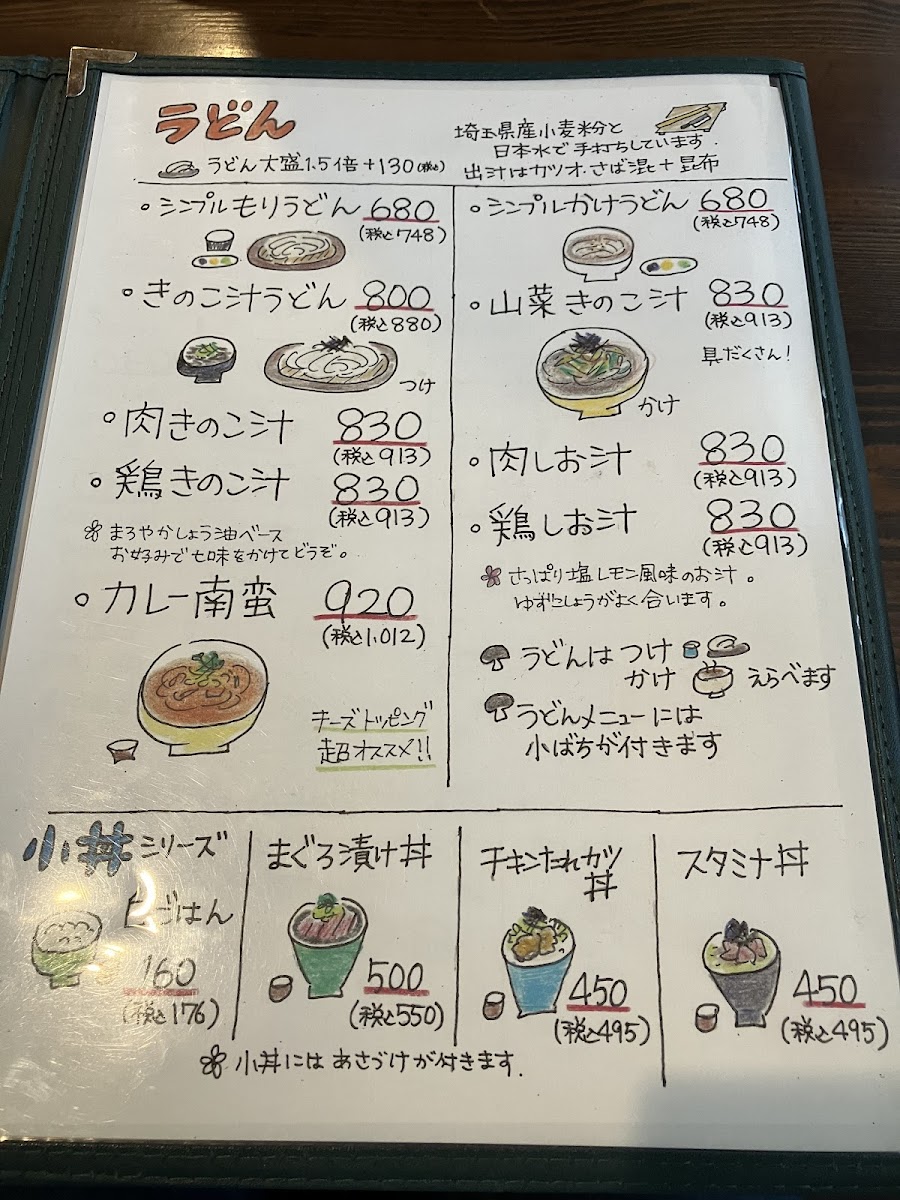 うどん
うどん大盛1.5倍+130(税込)
埼玉県産小麦粉と
日本水で手打ちしています.
出汁はカツオ・さば混+昆布
・シンプルもりうどん 680
(税込748)
・きのこ汁うどん 800
(税込880)
つけ
・肉きのこ汁 830
(税込913)
・鶏きのこ汁 830
(税込913)
まろやかしょう油ベース
お好みで七味をかけてどうぞ。
・カレー南蛮 920
(税込1,012)
チーズトッピング
超オススメ!!
・シンプルかけうどん 680
(税込748)
・山菜きのこ汁 830
(税込913)
具だくさん!
かけ
・肉しお汁 830
(税込913)
・鶏しお汁 830
(税込913)
さっぱり塩レモン風味のお汁。
ゆずこしょうがよく合います。
うどんは つけ
かけ えらべます
うどんメニューには
小ばちが付きます
小丼シリーズ
白ごはん
160
(税込176)
まぐろ漬け丼
500
(税込550)
チキンたれカツ
丼
450
(税込495)
スタミナ丼
450
(税込495)
小丼には あさづけが付きます.